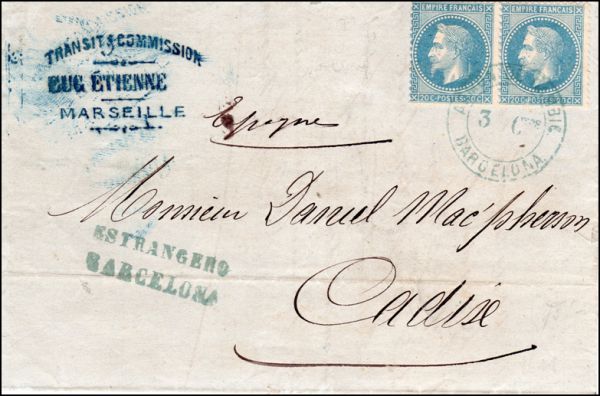 TRANSIT & COMMISSION
EUG. ÉTIENNE
MARSEILLE
EMPIRE FRANÇAIS
20 C POSTES 20 C
EMPIRE FRANÇAIS
20 C POSTES 20 C
3
BARCELONA
Espagne
Monsieur Daniel Mac'pherson
ESTRANGERO
BARCELONA
Cadix